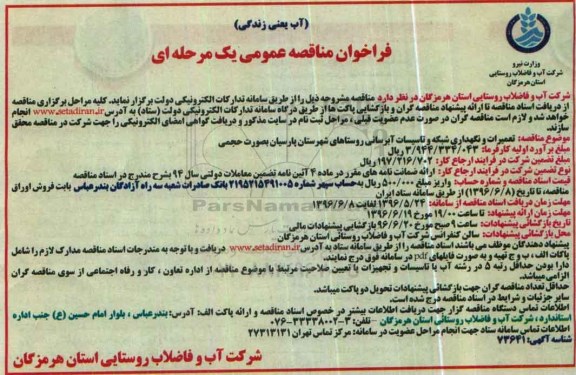 (آب یعنی زندگی)
فراخوان مناقصه عمومی یک مرحله ای
وزارت نیرو
شرکت آب و فاضلاب روستایی
استان هرمزگان
شرکت آب و فاضلاب روستایی استان هرمزگان در نظر دارد مناقصه مشروحه ذیل را از طریق سامانه تدارکات الکترونیکی دولت برگزار نماید. کلیه مراحل برگزاری مناقصه
از دریافت اسناد مناقصه تا ارائه پیشنهاد مناقصه گران و بازگشایی پاکت ها از طریق درگاه سامانه تدارکات الکترونیکی دولت (ستاد) به آدرس www.setadiran.ir انجام
خواهد شد و لازم است مناقصه گران در صورت عدم عضویت قبلی، مراحل ثبت نام در سایت مذکور و دریافت گواهی امضای الکترونیکی را جهت شرکت در مناقصه محقق
سازند.
موضوع مناقصه: تعمیرات و نگهداری شبکه و تاسیسات آبرسانی روستاهای شهرستان پارسیان بصورت حجمی
مبلغ برآورد اولیه کارفرما: ۳/۹۴۴/۳۳۴/۰۴۳ ریال
مبلغ تضمین شرکت در فرایند ارجاع کار: ۱۹۷/۲۱۶/۷۰۲ ریال
نوع تضمین شرکت در فرایند ارجاع کار: ارائه ضمانت نامه های مقرر در ماده ۴ آئین نامه تضمین معاملات دولتی سال ۹۴ بشرح مندرج در اسناد مناقصه
قیمت اسناد مناقصه و شماره حساب: واریز مبلغ ۵۰۰/۰۰۰ ریال به حساب سپهر شماره ۲۱۹۵۲۱۵۴۹۱۰۰۵ بانک صادرات شعبه سه راه آزادگان بندرعباس بابت فروش اوراق
مناقصه، تا تاریخ (۱۳۹۶/۶/۸) از طریق سامانه ستاد ایران
مهلت زمان دریافت اسناد مناقصه از سامانه: ۱۳۹۶/۵/۲۴ لغایت ۱۳۹۶/۶/۸
مهلت زمان ارائه پیشنهاد: تا ساعت ۱۹/۰۰ مورخ ۱۳۹۶/۶/۱۹
تاریخ بازگشائی پیشنهادات: ساعت ۹ صبح مورخ ۹۶/۶/۲۰ بازگشایی پیشنهادات مالی
محل بازگشائی پیشنهادات: سالن کنفرانس شرکت آب و فاضلاب روستائی استان هرمزگان
پیشنهاد دهندگان موظف می باشند اسناد مناقصه را از طریق سامانه ستاد به آدرس www.setadiran.ir دریافت و با توجه به مندرجات اسناد مناقصه مدارک لازم را شامل
پاکات الف، ب و ج تهیه و به صورت فایلهای pdf در سامانه فوق درج نمایند.
دارا بودن حداقل رتبه ۵ در رشته آب یا تاسیسات و تجهیزات یا تعیین صلاحیت مرتبط با موضوع مناقصه از اداره تعاون، کار و رفاه اجتماعی از سوی مناقصه گران
الزامی میباشد.
حداقل تعداد مناقصه گران جهت بازگشائی پیشنهادات تحویل دو پاکت میباشد.
سایر جزئیات و شرایط در اسناد مناقصه درج شده است.
اطلاعات تماس دستگاه مناقصه گزار جهت دریافت اطلاعات بیشتر در خصوص اسناد مناقصه و ارائه پاکت الف: آدرس: بندرعباس، بلوار امام حسین (ع) جنب اداره
استاندارد، شرکت آب و فاضلاب روستائی استان هرمزگان - تلفن: ۳-۳۳۳۳۸۰۰۲-۰۷۶
اطلاعات تماس سامانه ستاد جهت انجام مراحل عضویت در سامانه: مرکز تماس تهران ۲۷۳۱۳۱۳۱
شناسه آگهی: ۷۳۶۴۱
شرکت آب و فاضلاب روستایی استان هرمزگان
ParsNamad